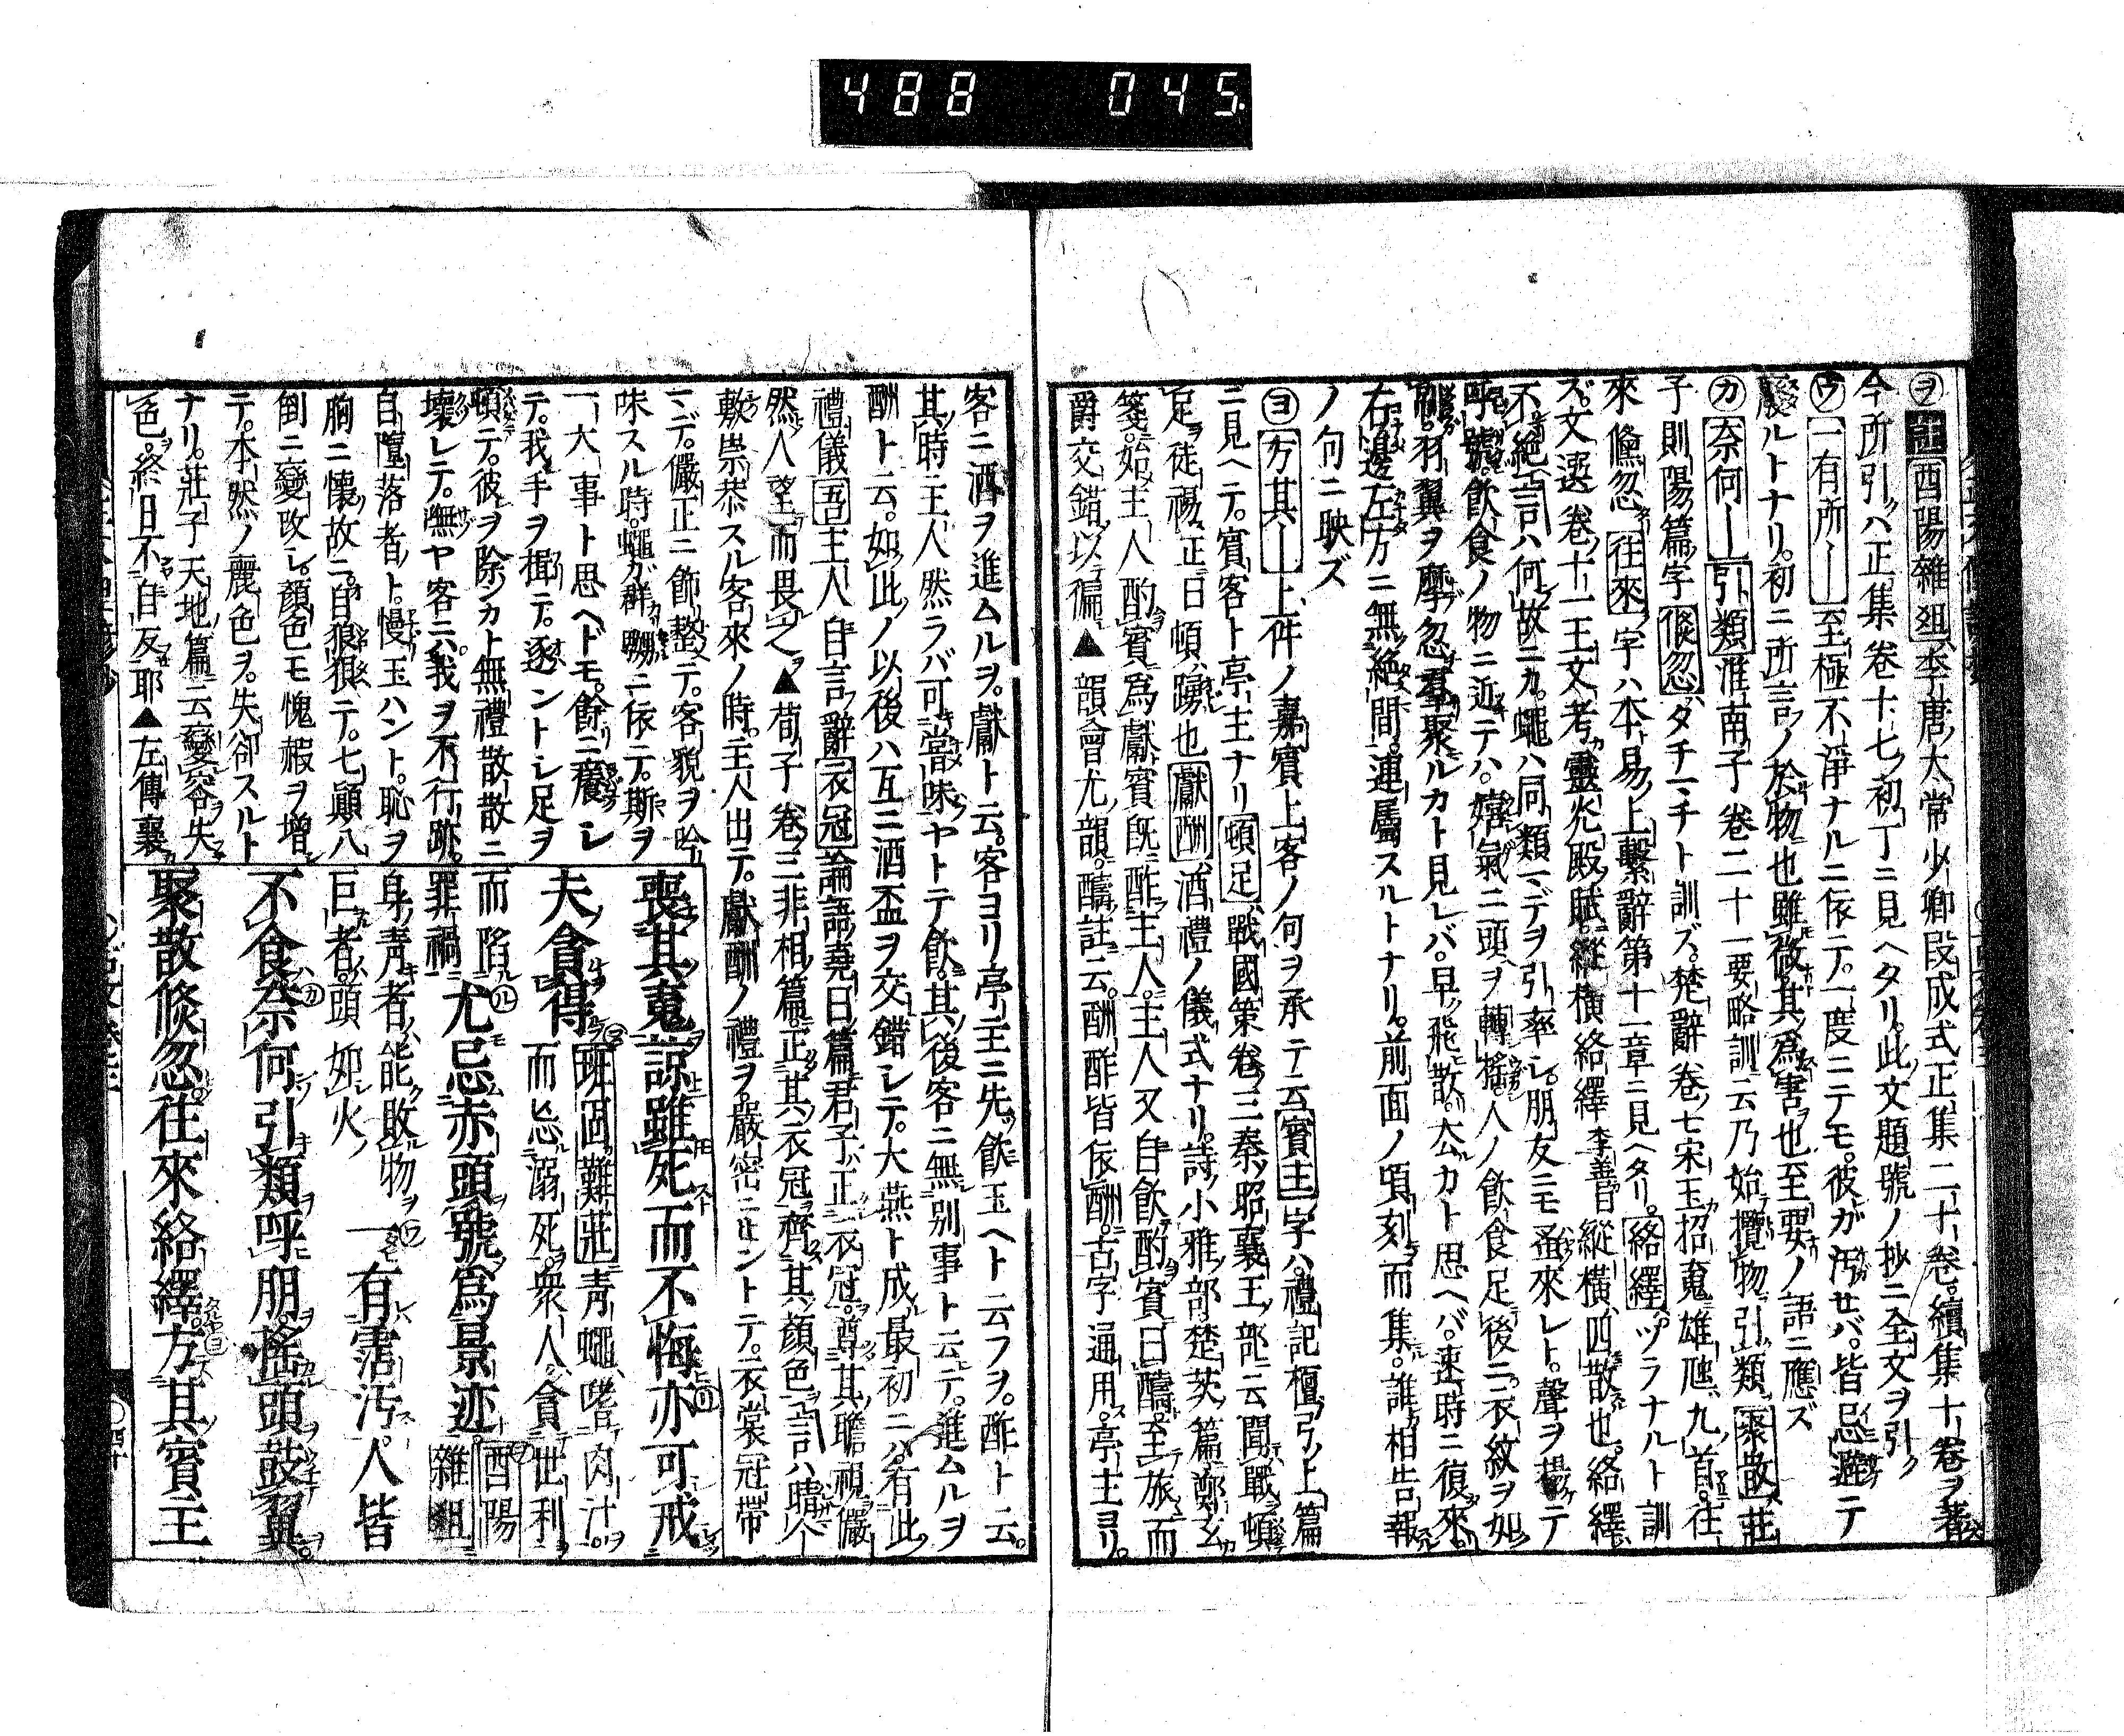 488 045
㋾註酉陽雜俎李唐大常少卿段成式正集二十卷續集十卷ヲ著
今所引ハ正集卷十七初丁ニ見ヘタリ此文題號ノ抄ニ全文ヲ引ク
㋻一有所―至極不淨ナルニ依テ一度ニテモ彼ガ汚セバ皆忌避テ
廢ルトナリ初ニ所言ノ於物也雖微其爲害也至要ノ語ニ應ズ
㋕奈何―引類淮南子卷二十一要略訓云乃始攬物引類聚散莊
子則陽篇字倐忽タチマチト訓ズ楚辭卷七宋玉招䰟雄虺九首往
來儵忽往來字ハ本易上繫辭第十一章ニ見ヘタリ絡繹ツラナルト訓
ズ文選卷十一王文考靈光殿賦縱橫絡繹李善曰縱橫四散也絡繹
不絶言ハ何故ニカ蠅ハ同類マデヲ引率レ朋友ニモ蚤來レト聲ヲ揚テ
呼號飲食ノ物ニ近テハ嬉氣ニ頭ヲ轉搖人ノ飲食足後ニ衣紋ヲ如
刷羽翼ヲ摩忽羣聚ルカト見レバ早飛散厺カト思ヘバ速時ニ復來
右邊左方ニ無絶間連屬スルトナリ前面ノ頃刻而集誰相告報
ノ句ニ映ズ
㋵方其―上件ノ嘉賓上客ノ句ヲ承テ云賓主字ハ禮記檀弓上篇
ニ見ヘテ賓客ト亭主ナリ頓足戰國策卷三秦昭襄王部ニ云聞戰頓
足徒裼正曰頓躓也獻酬酒禮ノ儀式ナリ詩小雅部楚茨篇鄭玄
箋云始主人酌賓爲獻賓既酢主人主人又自飲酌賓曰醻至旅而
爵交錯以徧▲韻會尤韻醻註云酬酢皆依酬古字通用亭主ヨリ
客ニ酒ヲ進ムルヲ獻ト云客ヨリ亭主ニ先飲玉ヘト云フヲ酢ト云
其時主人然ラバ可當味ヤトテ飲其後客ニ無別事ト云テ進ムルヲ
酬ト云如此ノ以後ハ互ニ酒盃ヲ交錯レテ大燕ト成最初ニハ有此
禮儀吾主人自言辭衣冠論語堯曰篇君子正衣冠尊其瞻視儼
然人望而畏之▲荀子卷三非相篇正其衣冠齊其顏色言ハ晴
敷崇恭スル客來ノ時主人出テ獻酬ノ禮ヲ嚴密ニセントテ衣裳冠帶
マデ儼正ニ飾整テ客貌ヲ
味スル時蠅ガ群嬲ニ依テ斯ヲ
一大事ト思ヘドモ餘ニ癢レ
テ我手ヲ揖テ逐ントレ足ヲ
頓テ彼ヲ除シカト無禮散散ニ
壞レテ憮ヤ客ニハ我ヲ不行跡
自墮落者ト慢玉ハント恥ヲ
胸ニ懷故ニ自狼狽テ七顚八
倒ニ變改レ顏色モ愧赧ヲ增
テ本然ノ麗色ヲ失卻スルト
ナリ莊子天地篇云變容失
色終日不自反耶▲左傳襄
喪其䰟諒雖死而不悔亦可戒
夫貪得㋦班固難莊靑蠅嗜肉汁
而忘溺死衆人貪世利
而陷罪禍㋸尤忌赤頭號爲景迹酉陽雜俎
身靑者能敗物
巨者頭如火㋻一有霑汚人皆
不食㋕奈何引類呼朋搖頭鼓翼
聚散倐忽往來絡繹㋵方其賓主